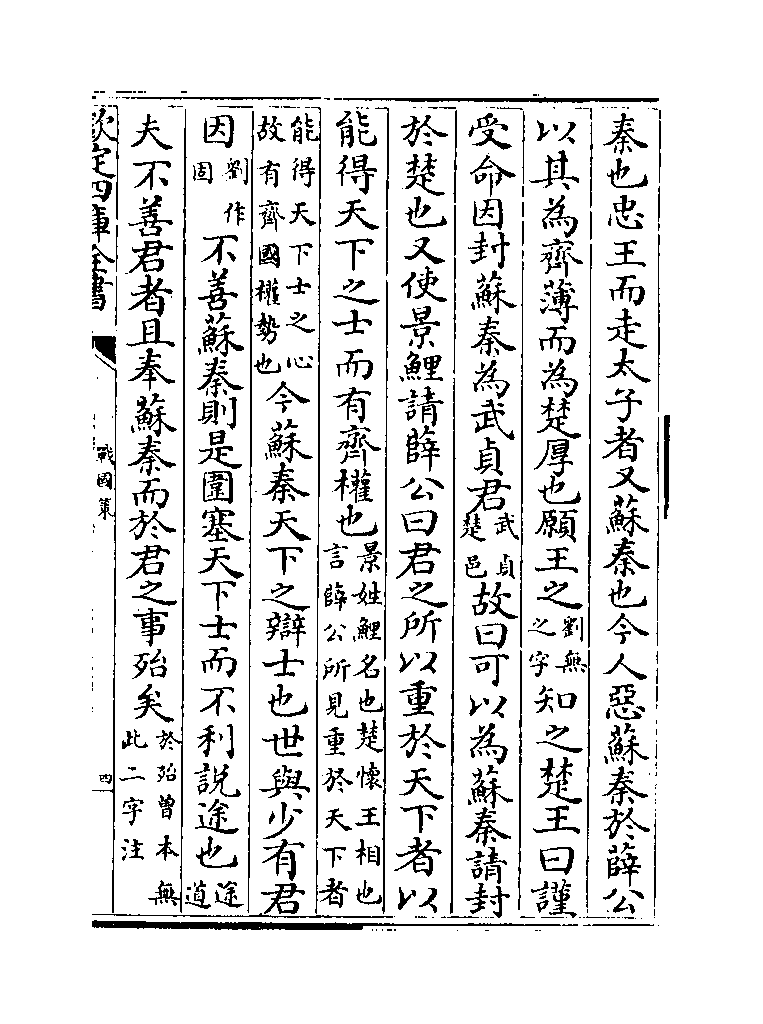 秦也忠王而走太子者又蘇秦也今人惡蘇秦於薛公
以其為齊薄而為楚厚也願王之劉無之字知之楚王曰謹
受命因封蘇秦為武貞君武貞楚邑故曰可以為蘇秦請封
於楚也又使景鯉請薛公曰君之所以重於天下者以
能得天下之士而有齊權也景姓鯉名也楚懷王相也言薛公所見重於天下者
能得天下士之心故有齊國權勢也今蘇秦天下之辯士也世與少有君
因劉作固不善蘇秦則是圍塞天下士而不利説途也途道
夫不善君者且奉蘇秦而於君之事殆矣於殆曾本無此二字注
欽定四庫全書
戰國策
四